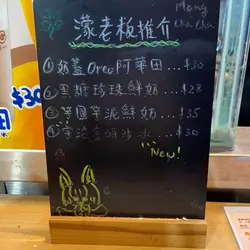 Mong
Cha Cha
濛老板推介
① 奶蓋Oreo阿華田...$30
② 黑糖珍珠鮮奶...$28
③ 芋圓芋泥鮮奶...$35
④ 冰...$30
New!
$30